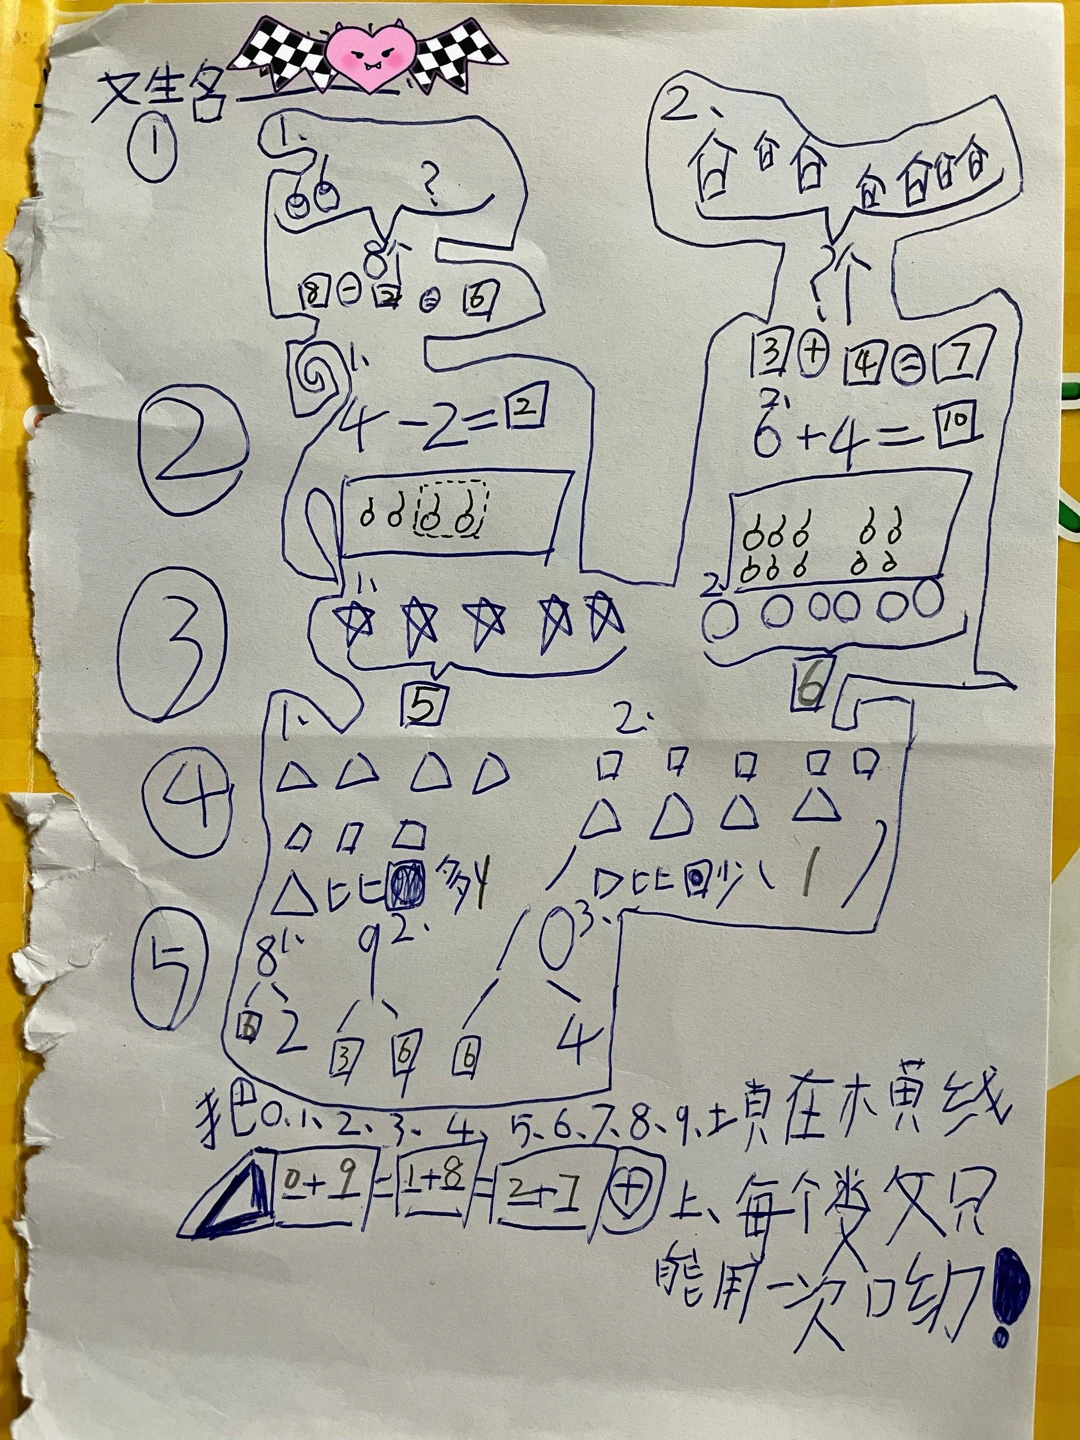 文生名
① 1、
?
8个
8-2=6
2、
?个
3+4=7
② 1、
4-2=2
2、
6+4=10
③ 1、
5
2、
6
④ 1、
△比□多1
2、
△比□少1
⑤ 8 1、
6 2
9 2、
3 6
10 3、
6 4
把0、1、2、3、4、5、6、7、8、9、填在横线
0+9=1+8=2+7
上、每个数文只
能用一次哟!